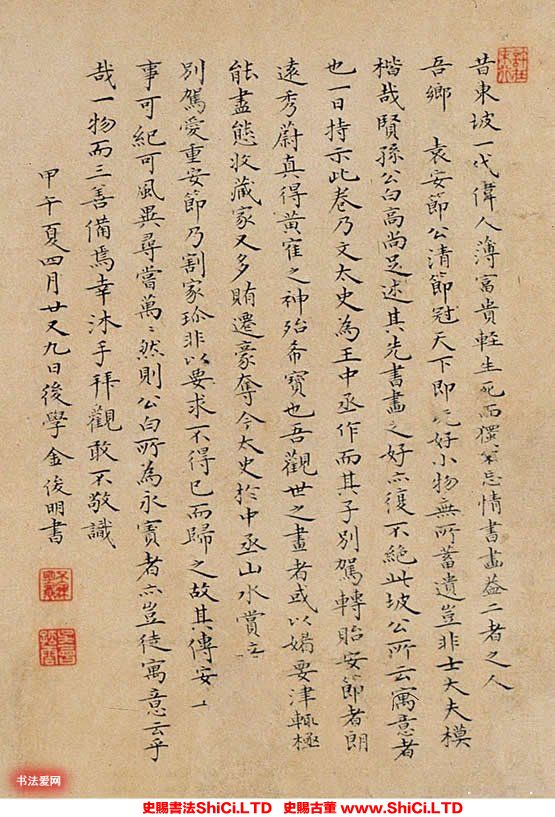 昔東坡一代偉人薄富貴輕生死而獨忘情書畫益二者之人
吾鄉 袁安節公清節冠天下即玩好小物無所蓄遺豈非士大夫模
楷哉賢孫公白高尚足述其先書畫之好亦復不絕此坡公所云寓意者
也一日持示此卷乃文太史為王中丞作而其子別駕轉貽安節者朗
遠秀蔚真得黃寉之神殆希寶也吾觀世之畫者或以媚要津輒極
能盡態收藏家又多賄遷豪奪今太史於中丞山水賞音
別駕愛重安節乃割家珍非以要求不得已而歸之故其傳安
事可紀可風異尋嘗萬萬然則公白所為永寶者亦豈徒寓意云乎
哉一物而三善備焉幸沐手拜觀敢不敬識
甲午夏四月廿又九日後學金俊明書
书法爱网
史賜書法ShiCi.LTD 史賜古董 www.ShiCi.LTD